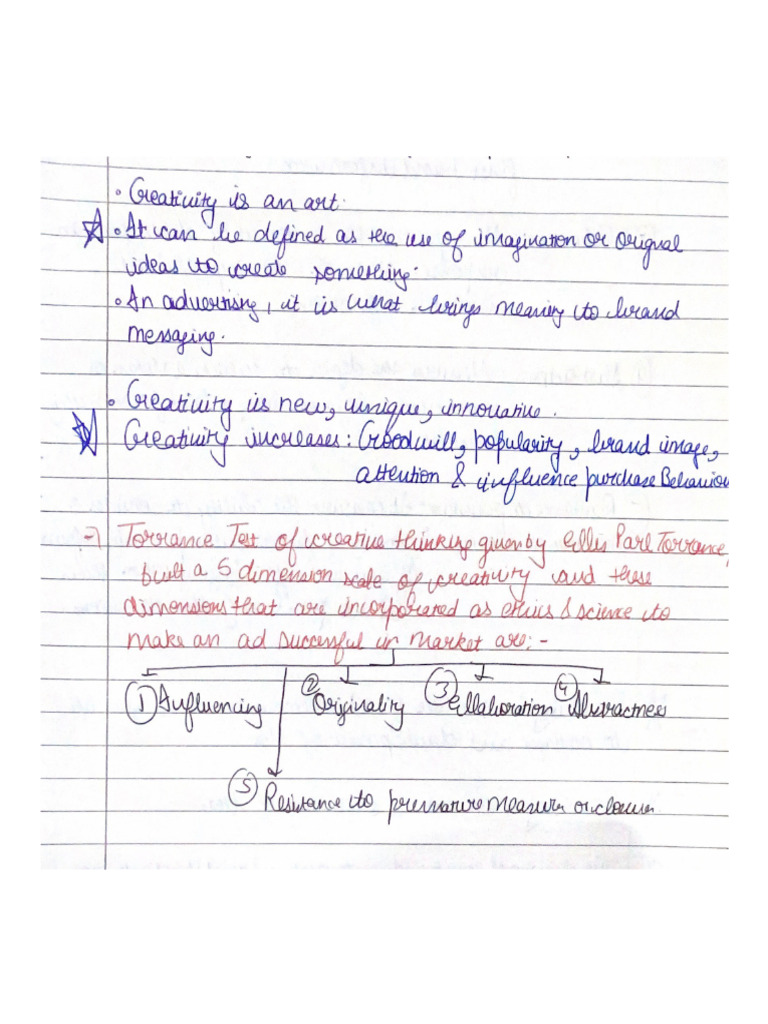 • Creativity is an art.
• It can be defined as the use of imagination or original
ideas to create something.
• In advertising, it is what brings meaning to brand
messaging.
• Creativity is new, unique, innovative.
Creativity increases: Goodwill, popularity, brand image,
attention & influence purchase Behaviour
→ Torrance Test of creative thinking given by Ellis Parl Torrance,
built a 5 dimension scale of creativity and these
dimensions that are incorporated as ethics & science to
make an ad successful in market are:-
① Influencing ② Originality ③ Ellaboration ④ Abstractness
⑤ Resistance to premature or closure